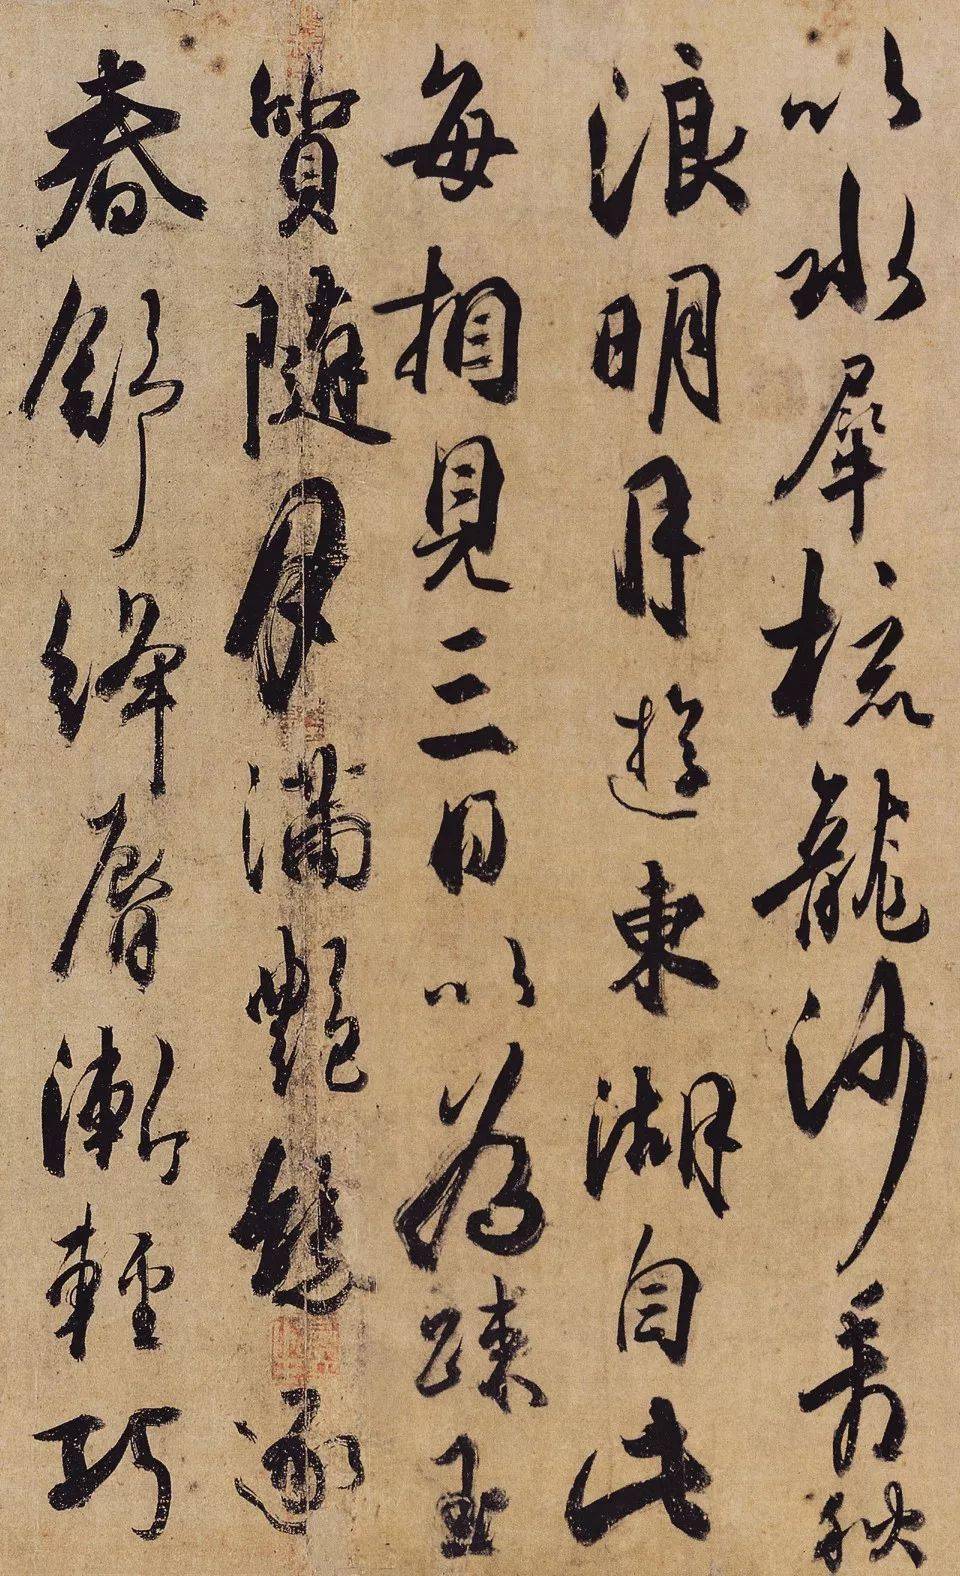 以水犀梳龍沙看秋
浪明月遊東湖自此
每相見三日以為踈玉
質隨月滿艷態逐
春舒絳脣漸輕巧